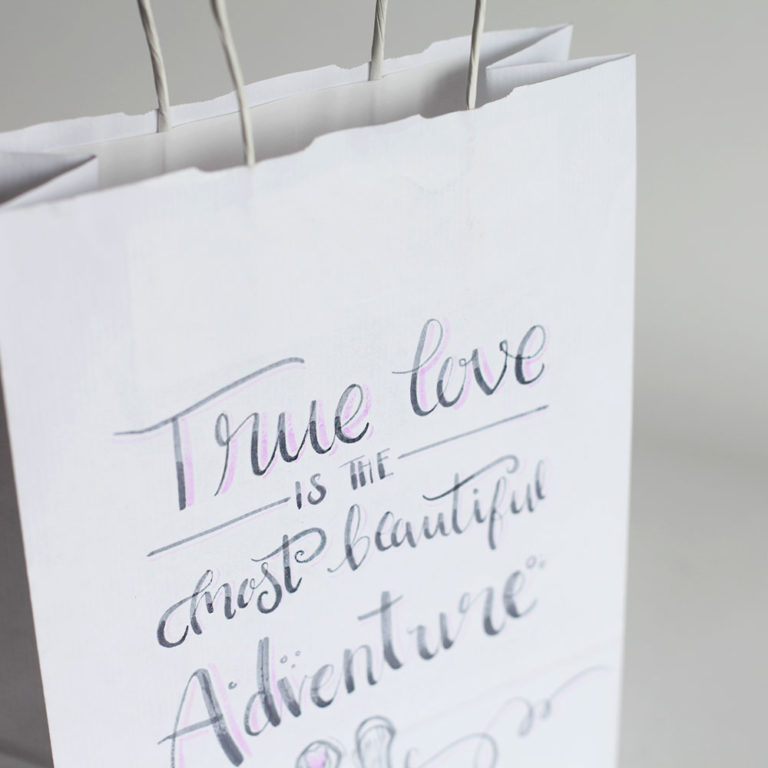 True love
IS THE
most beautiful
Adventure